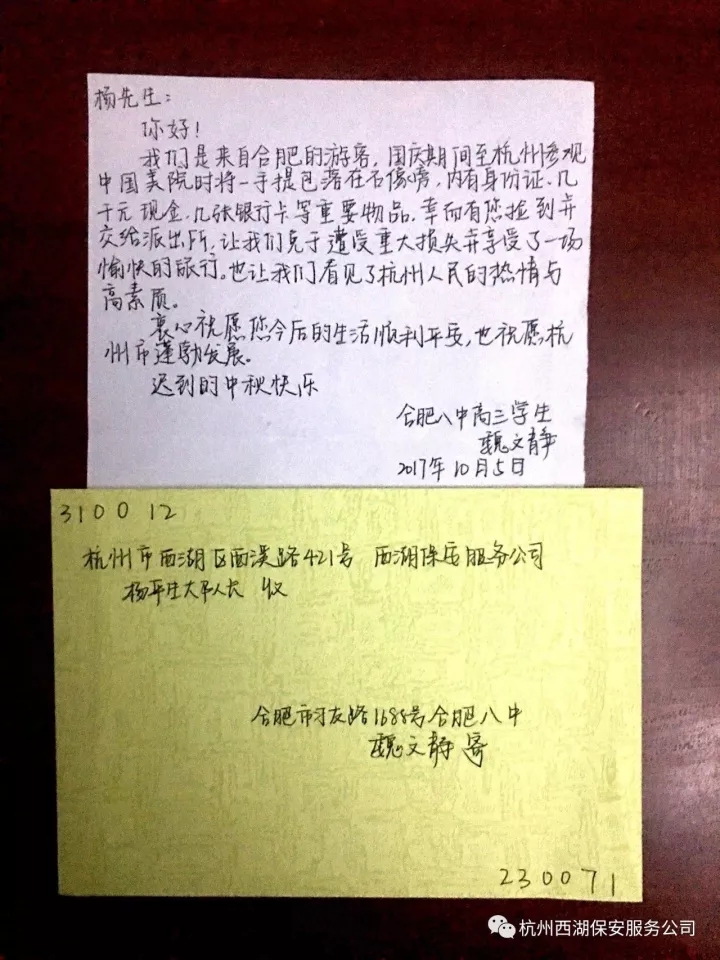 杨先生:
你好!
我们是来自合肥的游客,国庆期间至杭州参观
中国美院时将一手提包落在石像旁,内有身份证、几
千元现金、几张银行卡等重要物品。幸而有您捡到并
交给派出所,让我们免于遭受重大损失并享受了一场
愉快的旅行。也让我们看见了杭州人民的热情与
高素质。
衷心祝愿您今后的生活顺利平安,也祝愿杭
州市蓬勃发展。
迟到的中秋快乐
合肥八中高三学生
魏文静
2017年10月5日
310012
杭州市西湖区西溪路421号 西湖保安服务公司
杨平生大队长 收
合肥市习友路1688号合肥八中
魏文静 寄
230071
杭州西湖保安服务公司